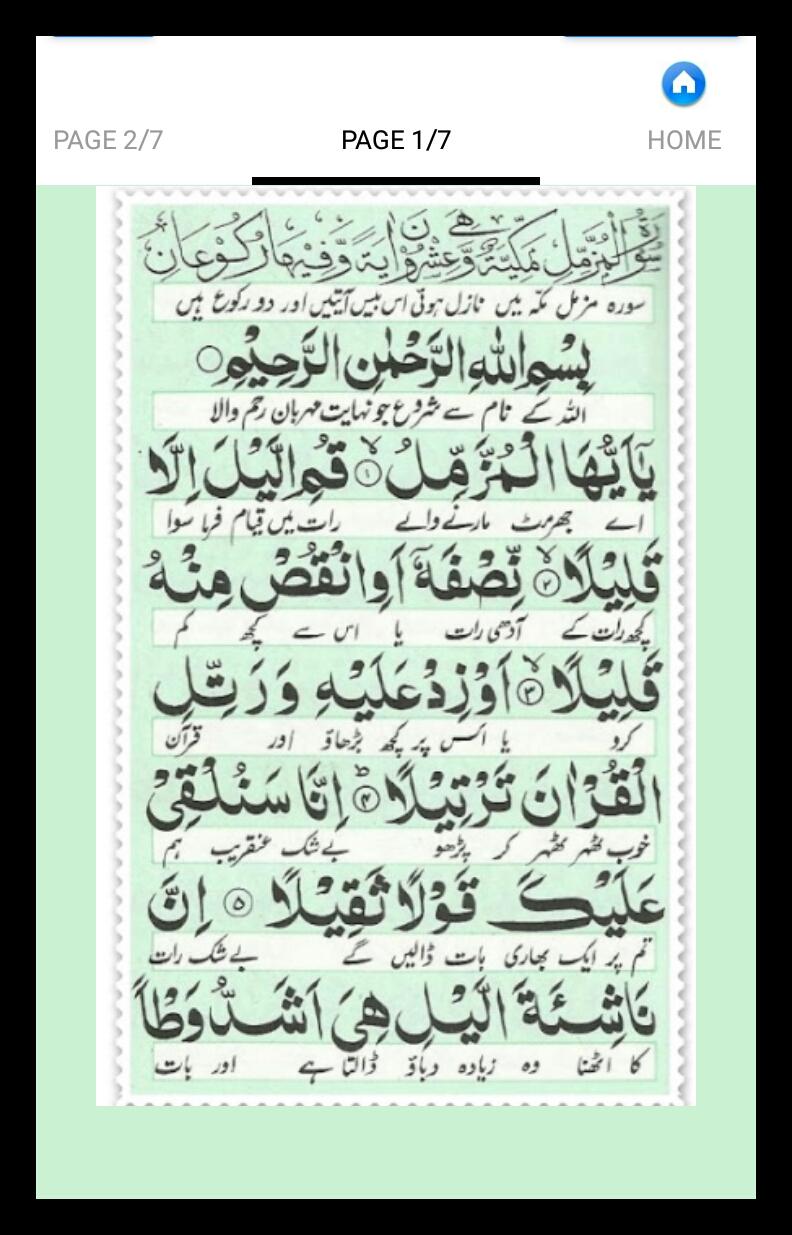 PAGE 2/7 PAGE 1/7 HOME
سُوْرَةُ الْمُزَّمِّلِ مَكِّيَّةٌ وَّهِيَ عِشْرُوْنَ اٰيَةً وَّفِيْهَا رُكُوْعَانِ
سورہ مزمل مکہ میں نازل ہوئی اس میں بیس آیتیں اور دو رکوع ہیں
بِسْمِ اللّٰهِ الرَّحْمٰنِ الرَّحِيْمِ
اللہ کے نام سے شروع جو نہایت مہربان رحم والا
يٰۤاَيُّهَا الْمُزَّمِّلُ ۙ‏﴿۱﴾ قُمِ الَّيْلَ اِلَّا
اے جھرمٹ مارنے والے رات میں قیام فرما سوا
قَلِيْلًا ۙ‏﴿۲﴾ نِّصْفَهٗۤ اَوِ انْقُصْ مِنْهُ
کچھ رات کے آدھی رات یا اس سے کچھ کم
قَلِيْلًا ۙ‏﴿۳﴾ اَوْ زِدْ عَلَيْهِ وَ رَتِّلِ
کرو یا اس پر کچھ بڑھاؤ اور قرآن
الْقُرْاٰنَ تَرْتِيْلًا ؕ‏﴿۴﴾ اِنَّا سَنُلْقِيْ
خوب ٹھہر ٹھہر کر پڑھو بے شک عنقریب ہم
عَلَيْكَ قَوْلًا ثَقِيْلًا ﴿۵﴾ اِنَّ
تم پر ایک بھاری بات ڈالیں گے بے شک رات
نَاشِئَةَ الَّيْلِ هِيَ اَشَدُّ وَطْاً
کا اٹھنا وہ زیادہ دباؤ ڈالتا ہے اور بات